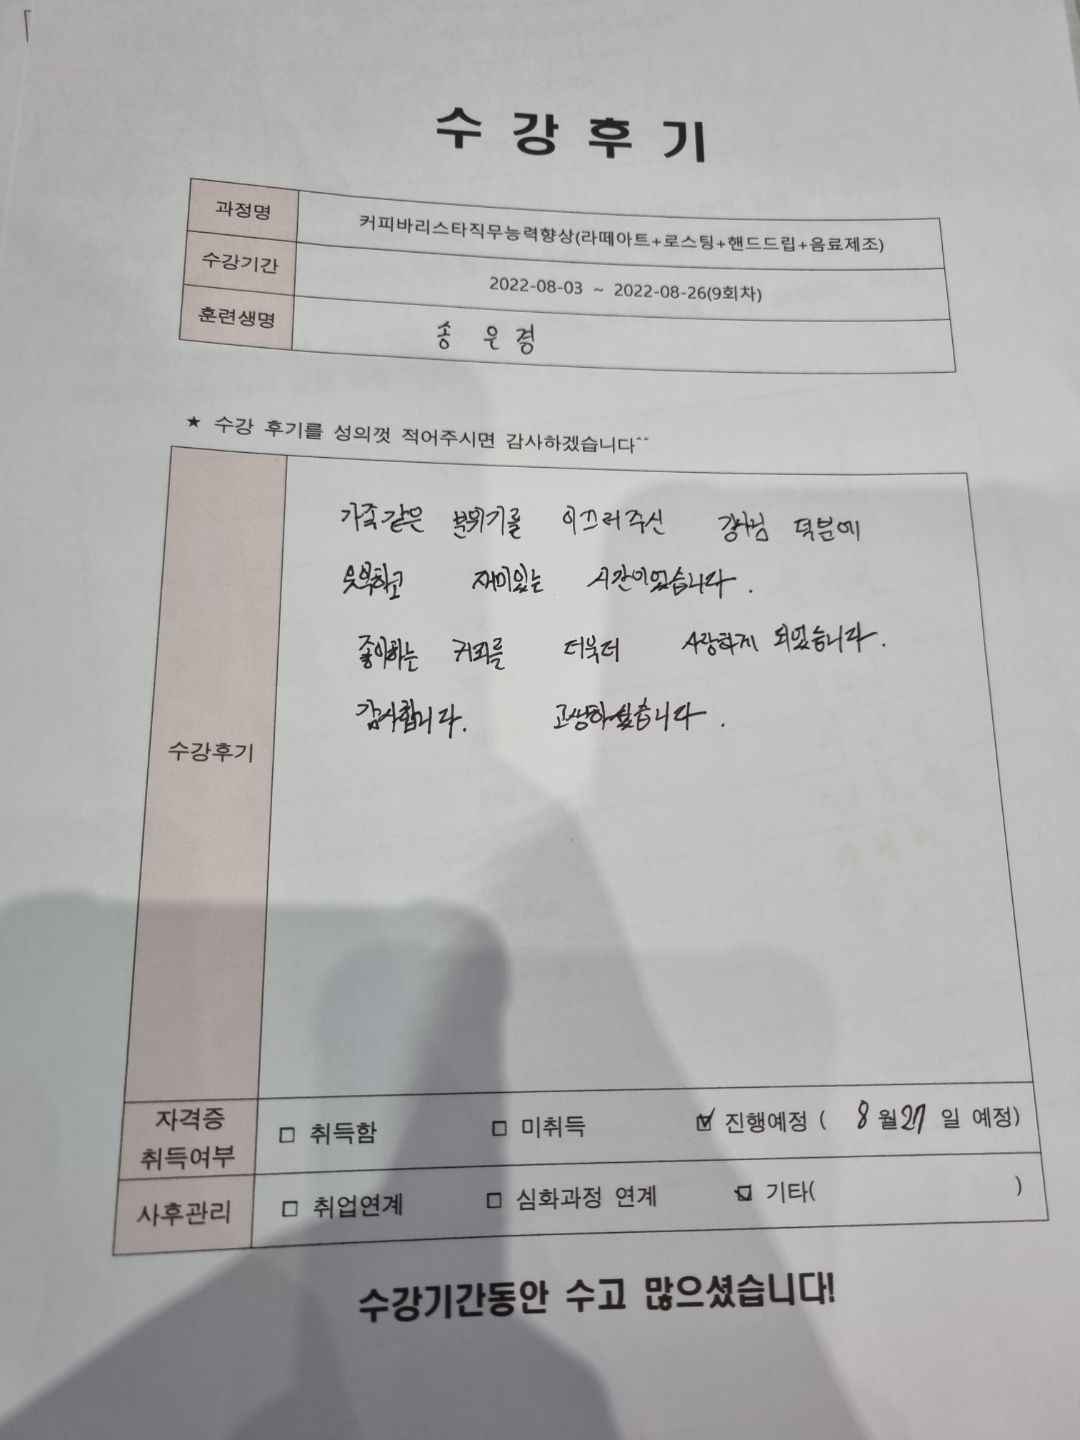 수 강 후 기
과정명 커피바리스타직무능력향상(라떼아트+로스팅+핸드드립+음료제조)
수강기간 2022-08-03 ~ 2022-08-26(9회차)
훈련생명 송 은 경
★ 수강 후기를 성의껏 적어주시면 감사하겠습니다^^
가족같은 분위기를 이끄러주신 강사님 덕분에
재미있는 시간이었습니다.
좋아하는 커피를 더욱더 사랑하게 되었습니다.
감사합니다.
수강후기
자격증 취득여부 □ 취득함 □ 미취득 ☑ 진행예정 ( 8 월 27 일 예정)
사후관리 □ 취업연계 □ 심화과정 연계 ☑ 기타( )
수강기간동안 수고 많으셨습니다!